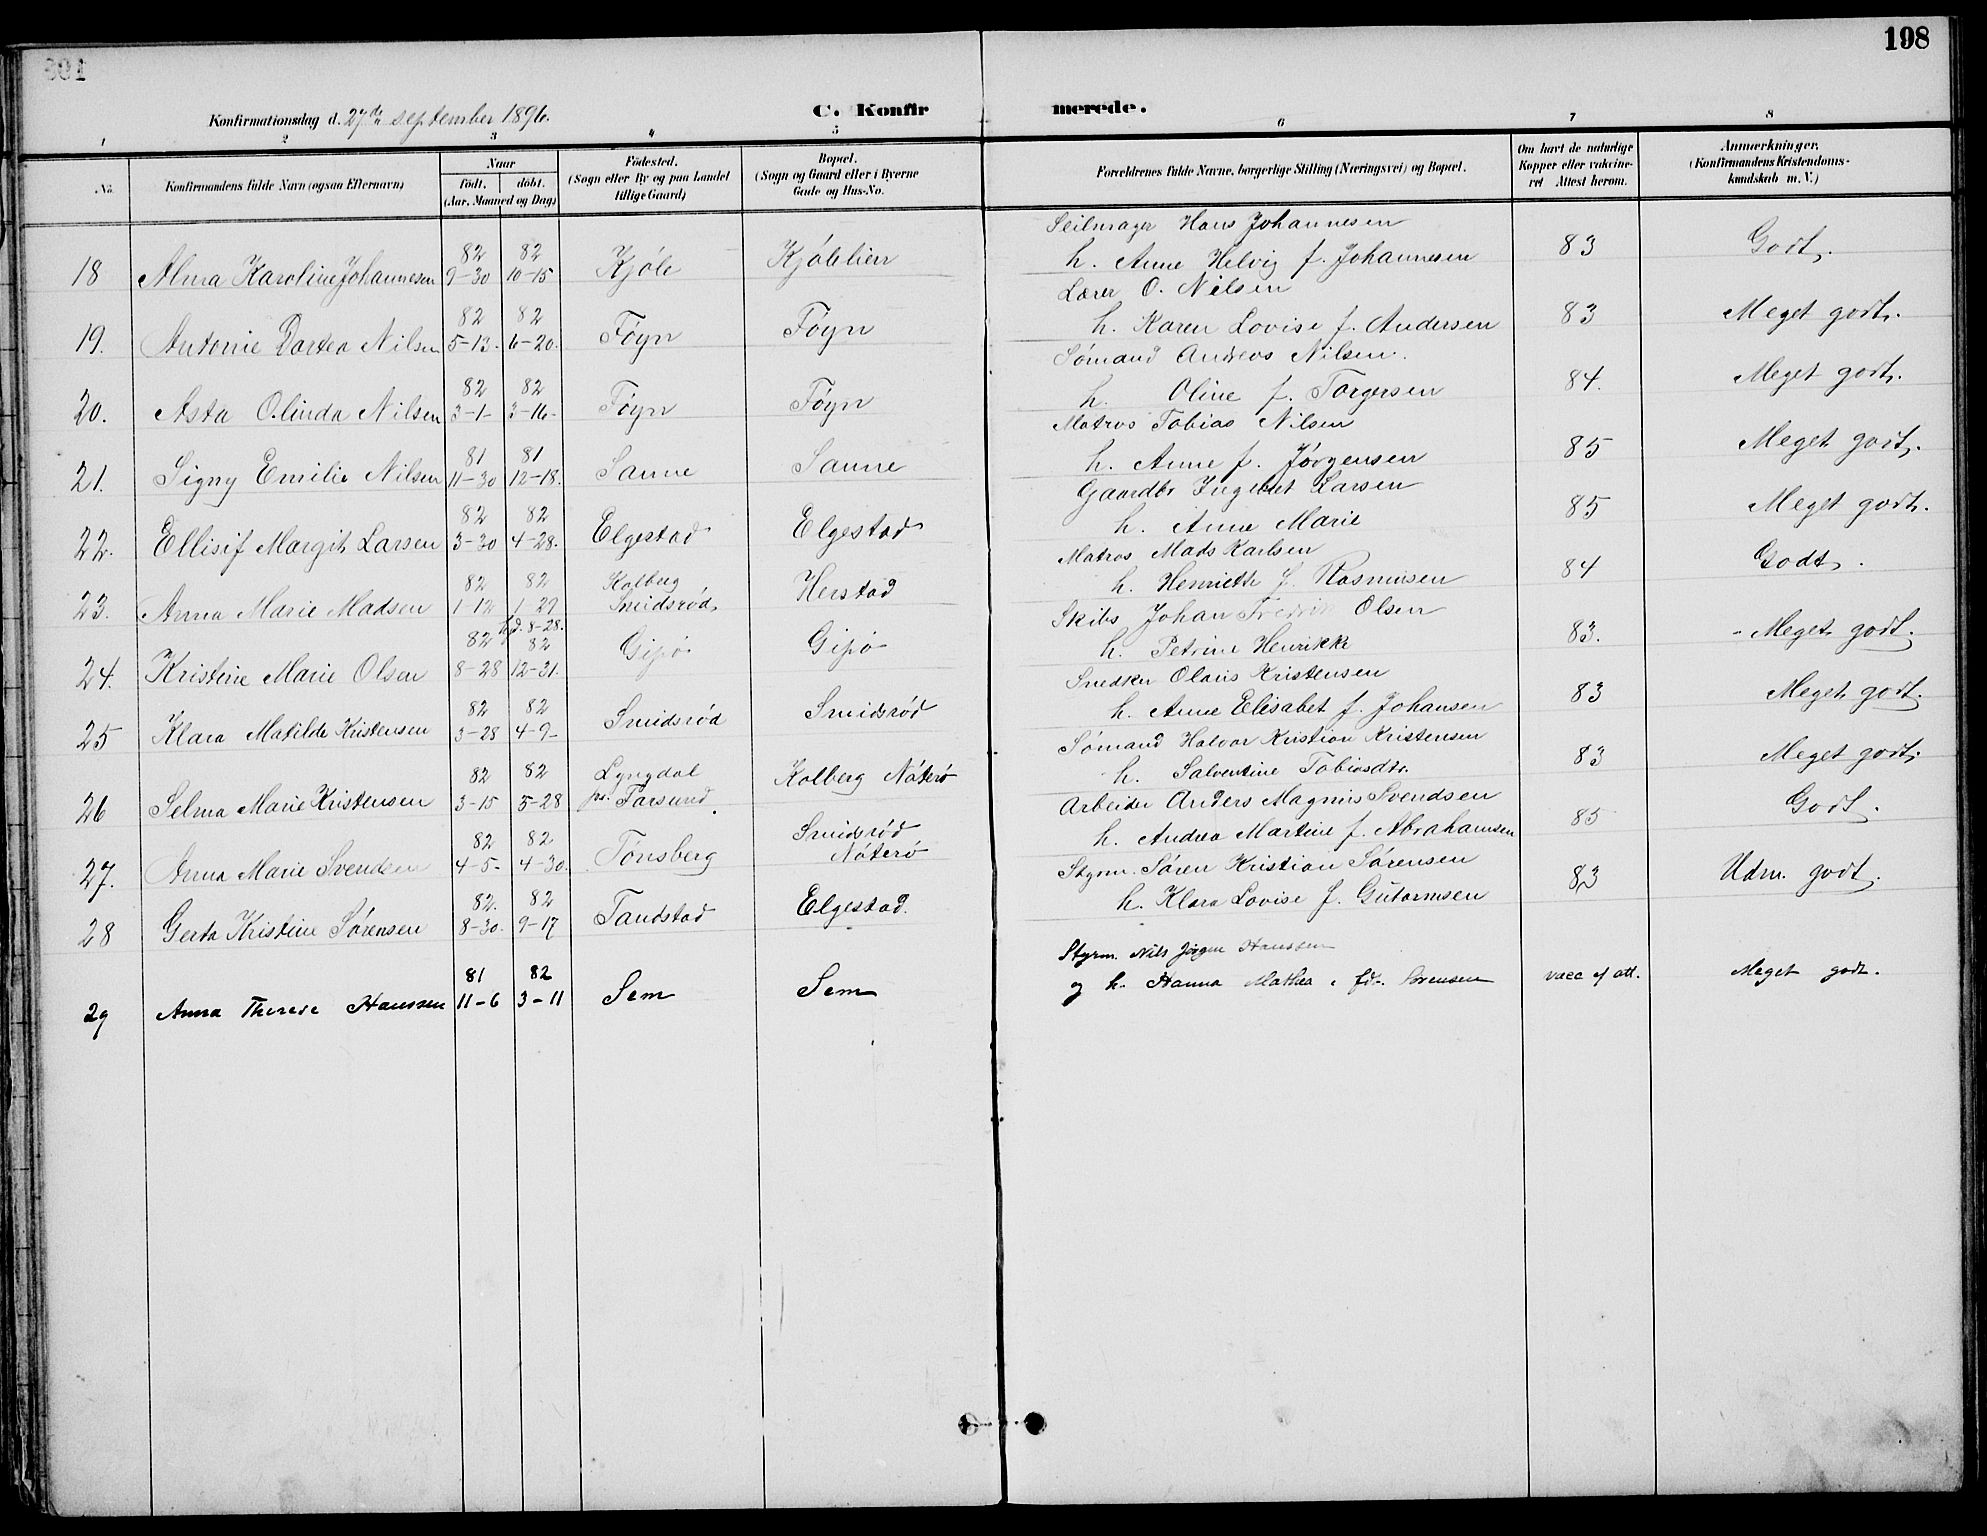 198
Konfirmationsdag d. 27de september 1896. C. Konfirmerede.
1 2 3 4 5 6 7 8
No. Konfirmandens fulde Navn (ogsaa Efternavn) Naar født, døbt. (Aar, Maaned og Dag) Fødested. (Sogn eller By og paa Landet tillige Gaard) Bopæl. (Sogn og Gaard eller i Byerne Gade og Hus-No. Forældrenes fulde Navne, borgerlige Stilling (Næringsvei) og Bopæl. Om havt de naturlige Kopper eller vakcineret Attest herom. Anmærkninger. (Konfirmandens Kristendomskundskab m. V.)
18 Alma Karoline Johannesen 82 9-30 82 10-15 Kjøle Kjølelien Seilmager Hans Johannesen
h. Anne Helvig f. Johannesen 83 Godt.
19. Antonie Dortea Nilsen 82 5-13. 82 6-20. Føyn Føyn Lærer O. Nilsen
h. Karen Lovise f. Andersen 83 Meget godt.
20. Asta Olinda Nilsen 82 3-1- 82 3-16- Føyn Føyn Sømand Andreas Nilsen.
h. Oline f. Torgersen 84. Meget godt.
21. Signy Emilie Nilsen 81 11-30 81 12-18. Sanne Sanne Matros Tobias Nilsen
h. Anne f. Jørgensen 85 Meget godt.
22. Ellisif Margit Larsen 82 3-30 82 4-28. Elgestad Elgestad Gaardbr Ingebret Larsen
h. Anne Marie 85 Meget godt.
23. Anna Marie Madsen 82 1-12 82 1-29 Kolberg Smidsrød Herstad Matros Mads Karlsen
h. Henriette f. Rasmusen 84 Godt.
24. Kristine Marie Olsen 82 8-28 8-28. 82 12-31. Gipø Gipø Skibs Johan Fredrik Olsen
h. Petrine Henrikke 83. Meget godt.
25 Klara Matilde Kristensen 82 3-28 82 4-9- Smidsrød Smidsrød Snedker Olaus Kristensen
h. Anne Elisabet f. Johansen 83 Meget godt.
26 Selma Marie Kristensen 82 3-15 82 5-28 Lyngdal pr. Farsund. Kolberg Nøterø Sømand Halvor Kristian Kristensen
h. Salventine Tobiasdtr. 83 Meget godt.
27. Anna Marie Svendsen 82 4-5- 82 4-30. Tønsberg Smidsrød Nøterø Arbeider Anders Magnus Svendsen
h. Andrea Martine f. Abrahamsen 85 Godt.
28 Gerta Kristine Sørensen 82. 8-30. 82 9-17 Tandstad Elgestad. Styrm. Søren Kristian Sørensen
h. Klara Lovise f. Gutormsen 83 Udm. godt.
29 Anna Therese Hanssen 81 11-6 82 3-11 Sem Sem Styrm. Nils Jørgen Hanssen
og h. Hanna Mathea fd. Sorensen vacc e/ att. Meget godt.